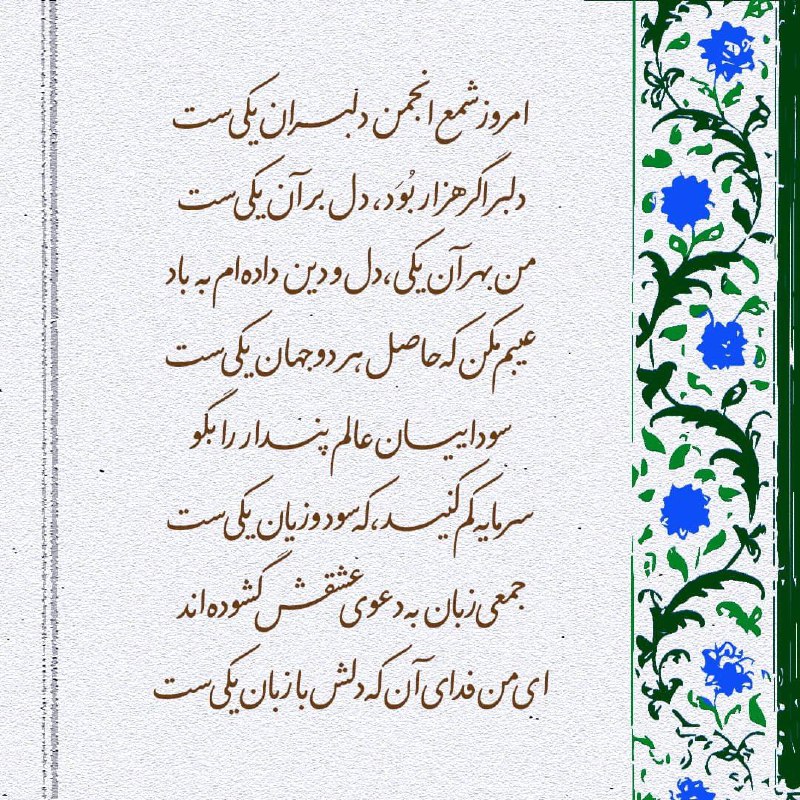 امروز شمع انجمن دلبران یکی‌ست
دلبر اگر هزار بُوَد، دل بر آن یکی‌ست
من بهر آن یکی، دل و دین داده‌ام به باد
عیبم مکن که حاصل هر دو جهان یکی‌ست
سوداییان عالم پندار را بگو
سرمایه کم کنید، که سود و زیان یکی‌ست
جمعی زبان به دعوی عشقش گشوده اند
ای من فدای آن که دلش با زبان یکی‌ست